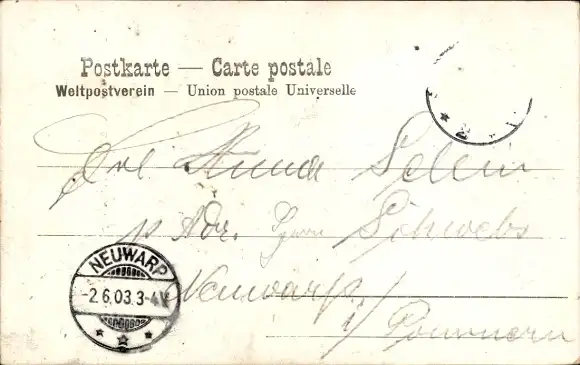 Postkarte — Carte postale
Weltpostverein — Union postale Universelle
Frl
p Adr. Herrn Schwebs
Neuwarp
i/ Pommern
NEUWARP
-2.6.03.3-4V